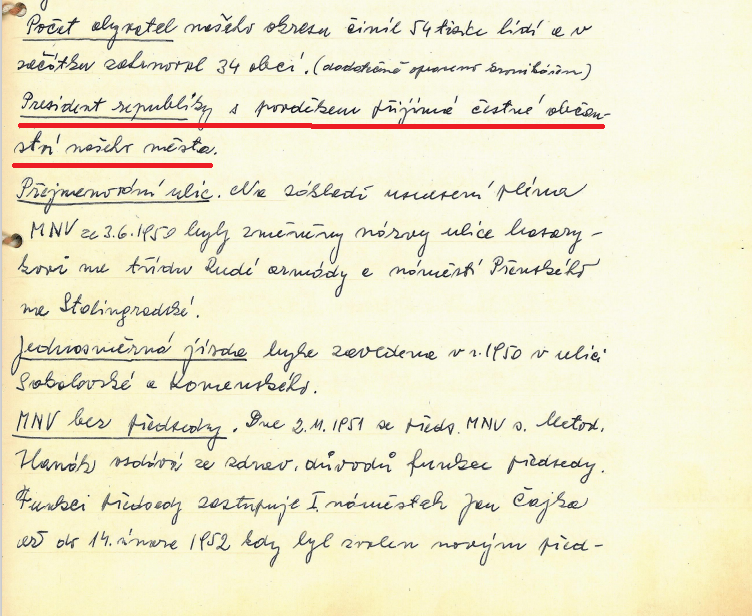 Počet obyvatel našeho okresu činil 54 tisíce lidí a v
začátku zahrnoval 34 obcí. (dodatečně opraveno kronikářem)
President republiky s povděkem přijímá čestné občan-
ství našeho města.
Přejmenování ulic. Na základě usnesení pléna
MNV ze 3.6.1950 byly změněny názvy ulice Masary-
kovi na třídu Rudé armády a náměstí
na Stalingradské.
Jednosměrná jízda byla zavedena v r. 1950 v ulici
Sokolovské a Komenského.
MNV bez předsedy. Dne 2.11.1951 se předs. MNV s. Metod.
Hanák vzdává ze zdrav. důvodů funkce předsedy.
Funkci předsedy zastupuje I. náměstek Jan Čajka
až do 14. února 1952 kdy byl zvolen novým před-